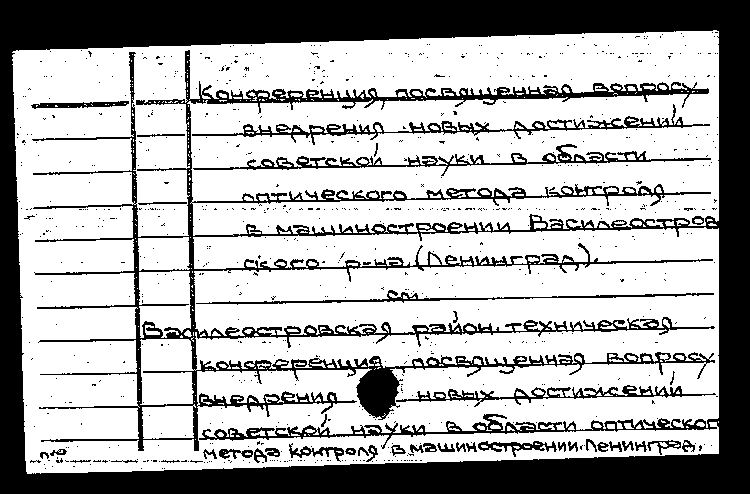 Конференция, посвященная вопросу
внедрения новых достижений
советской науки в области
оптического метода контроля
в машиностроении Василеостров
ского р-на (Ленинград).
см.
Василеостровская район. техническая
конференция, посвященная вопросу
внедрения новых достижений
советской науки в области оптическог
метода контроля в машиностроении. Ленинград,